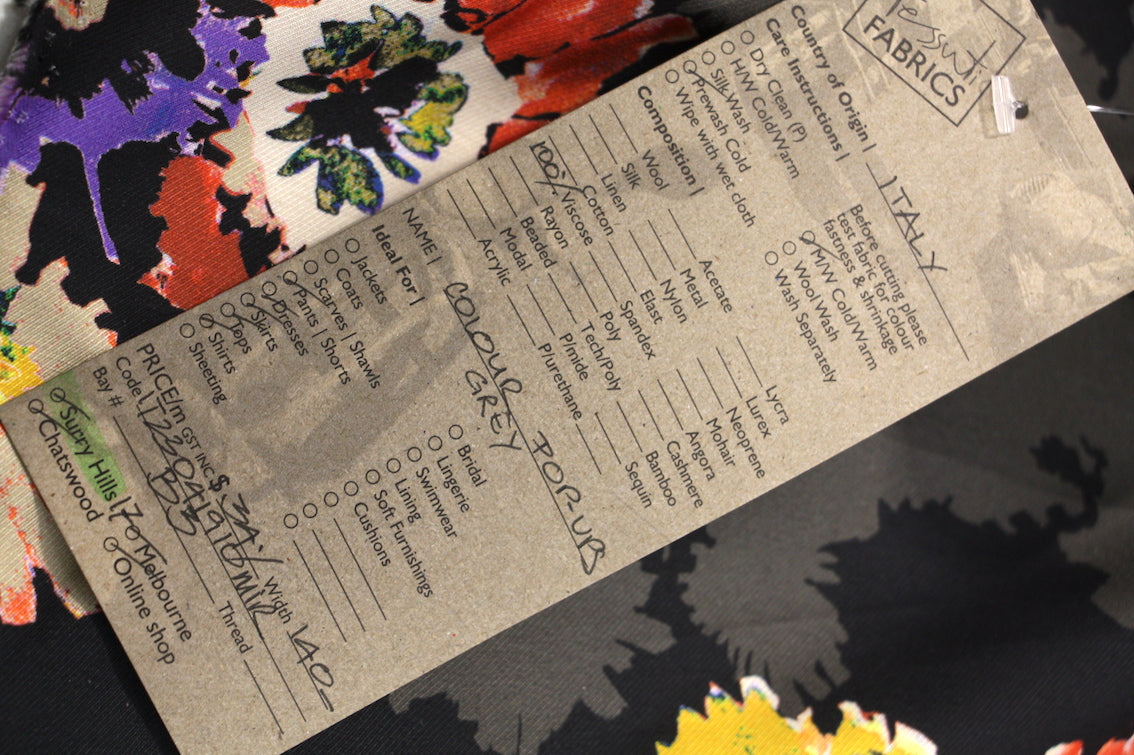 Tessuti
FABRICS
Country of Origin | ITALY
Care Instructions |
Dry Clean (P)
H/W Cold/Warm
Silk Wash
Prewash Cold
Wipe with wet cloth
Before cutting please
test fabric for colour
fastness & shrinkage
M/W Cold/Warm
Wool Wash
Wash Separately
Composition |
Wool
Silk
Linen
Cotton
100% Viscose
Rayon
Beaded
Modal
Acrylic
Acetate
Metal
Nylon
Elast
Spandex
Poly
Tech/Poly
P/mide
P/urethane
Lycra
Lurex
Neoprene
Mohair
Angora
Cashmere
Bamboo
Sequin
NAME | COLOUR POP-UB
GREY
Ideal For |
Jackets
Coats
Scarves | Shawls
Pants | Shorts
Dresses
Skirts
Tops
Shirts
Sheeting
Bridal
Lingerie
Swimwear
Lining
Soft Furnishings
Cushions
PRICE/m GST INC $ Width 140-
Code |
Bay # B3 Thread
Surry Hills Melbourne
Chatswood Online shop